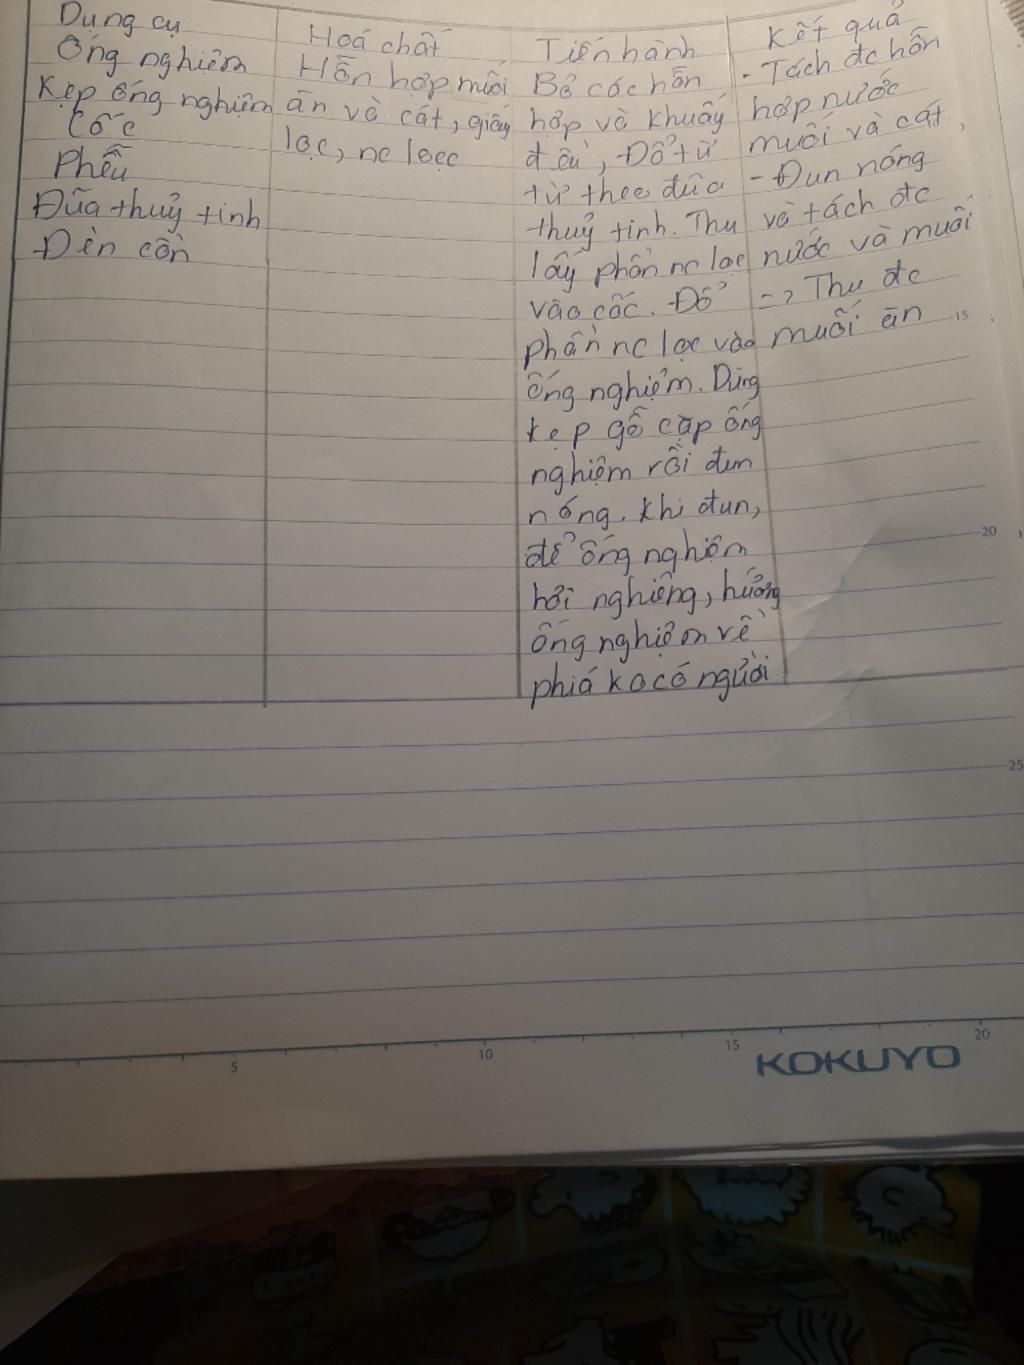 Dụng cụ
Ống nghiệm
Kẹp ống nghiệm
Cốc
Phễu
Đũa thuỷ tinh
Đèn cồn
Hoá chất
Hỗn hợp muối
ăn và cát, giấy
lọc, nc lọc
Tiến hành
Bỏ cốc hỗn
hợp và khuấy
đều, Đổ từ
từ theo đũa
thuỷ tinh. Thu
lấy phần nc lọc
vào cốc. Đổ
phần nc lọc vào
ống nghiệm. Dùng
kẹp gỗ cặp ống
nghiệm rồi đun
nóng. Khi đun,
để ống nghiệm
hơi nghiêng, hướng
ống nghiệm về
phiá ko có người
Kết quả
- Tách đc hỗn
hợp nước
muối và cát,
- Đun nóng
và tách đc
nước và muối
=> Thu đc
muối ăn
15
20
25
5
10
15
20
KOKUYO